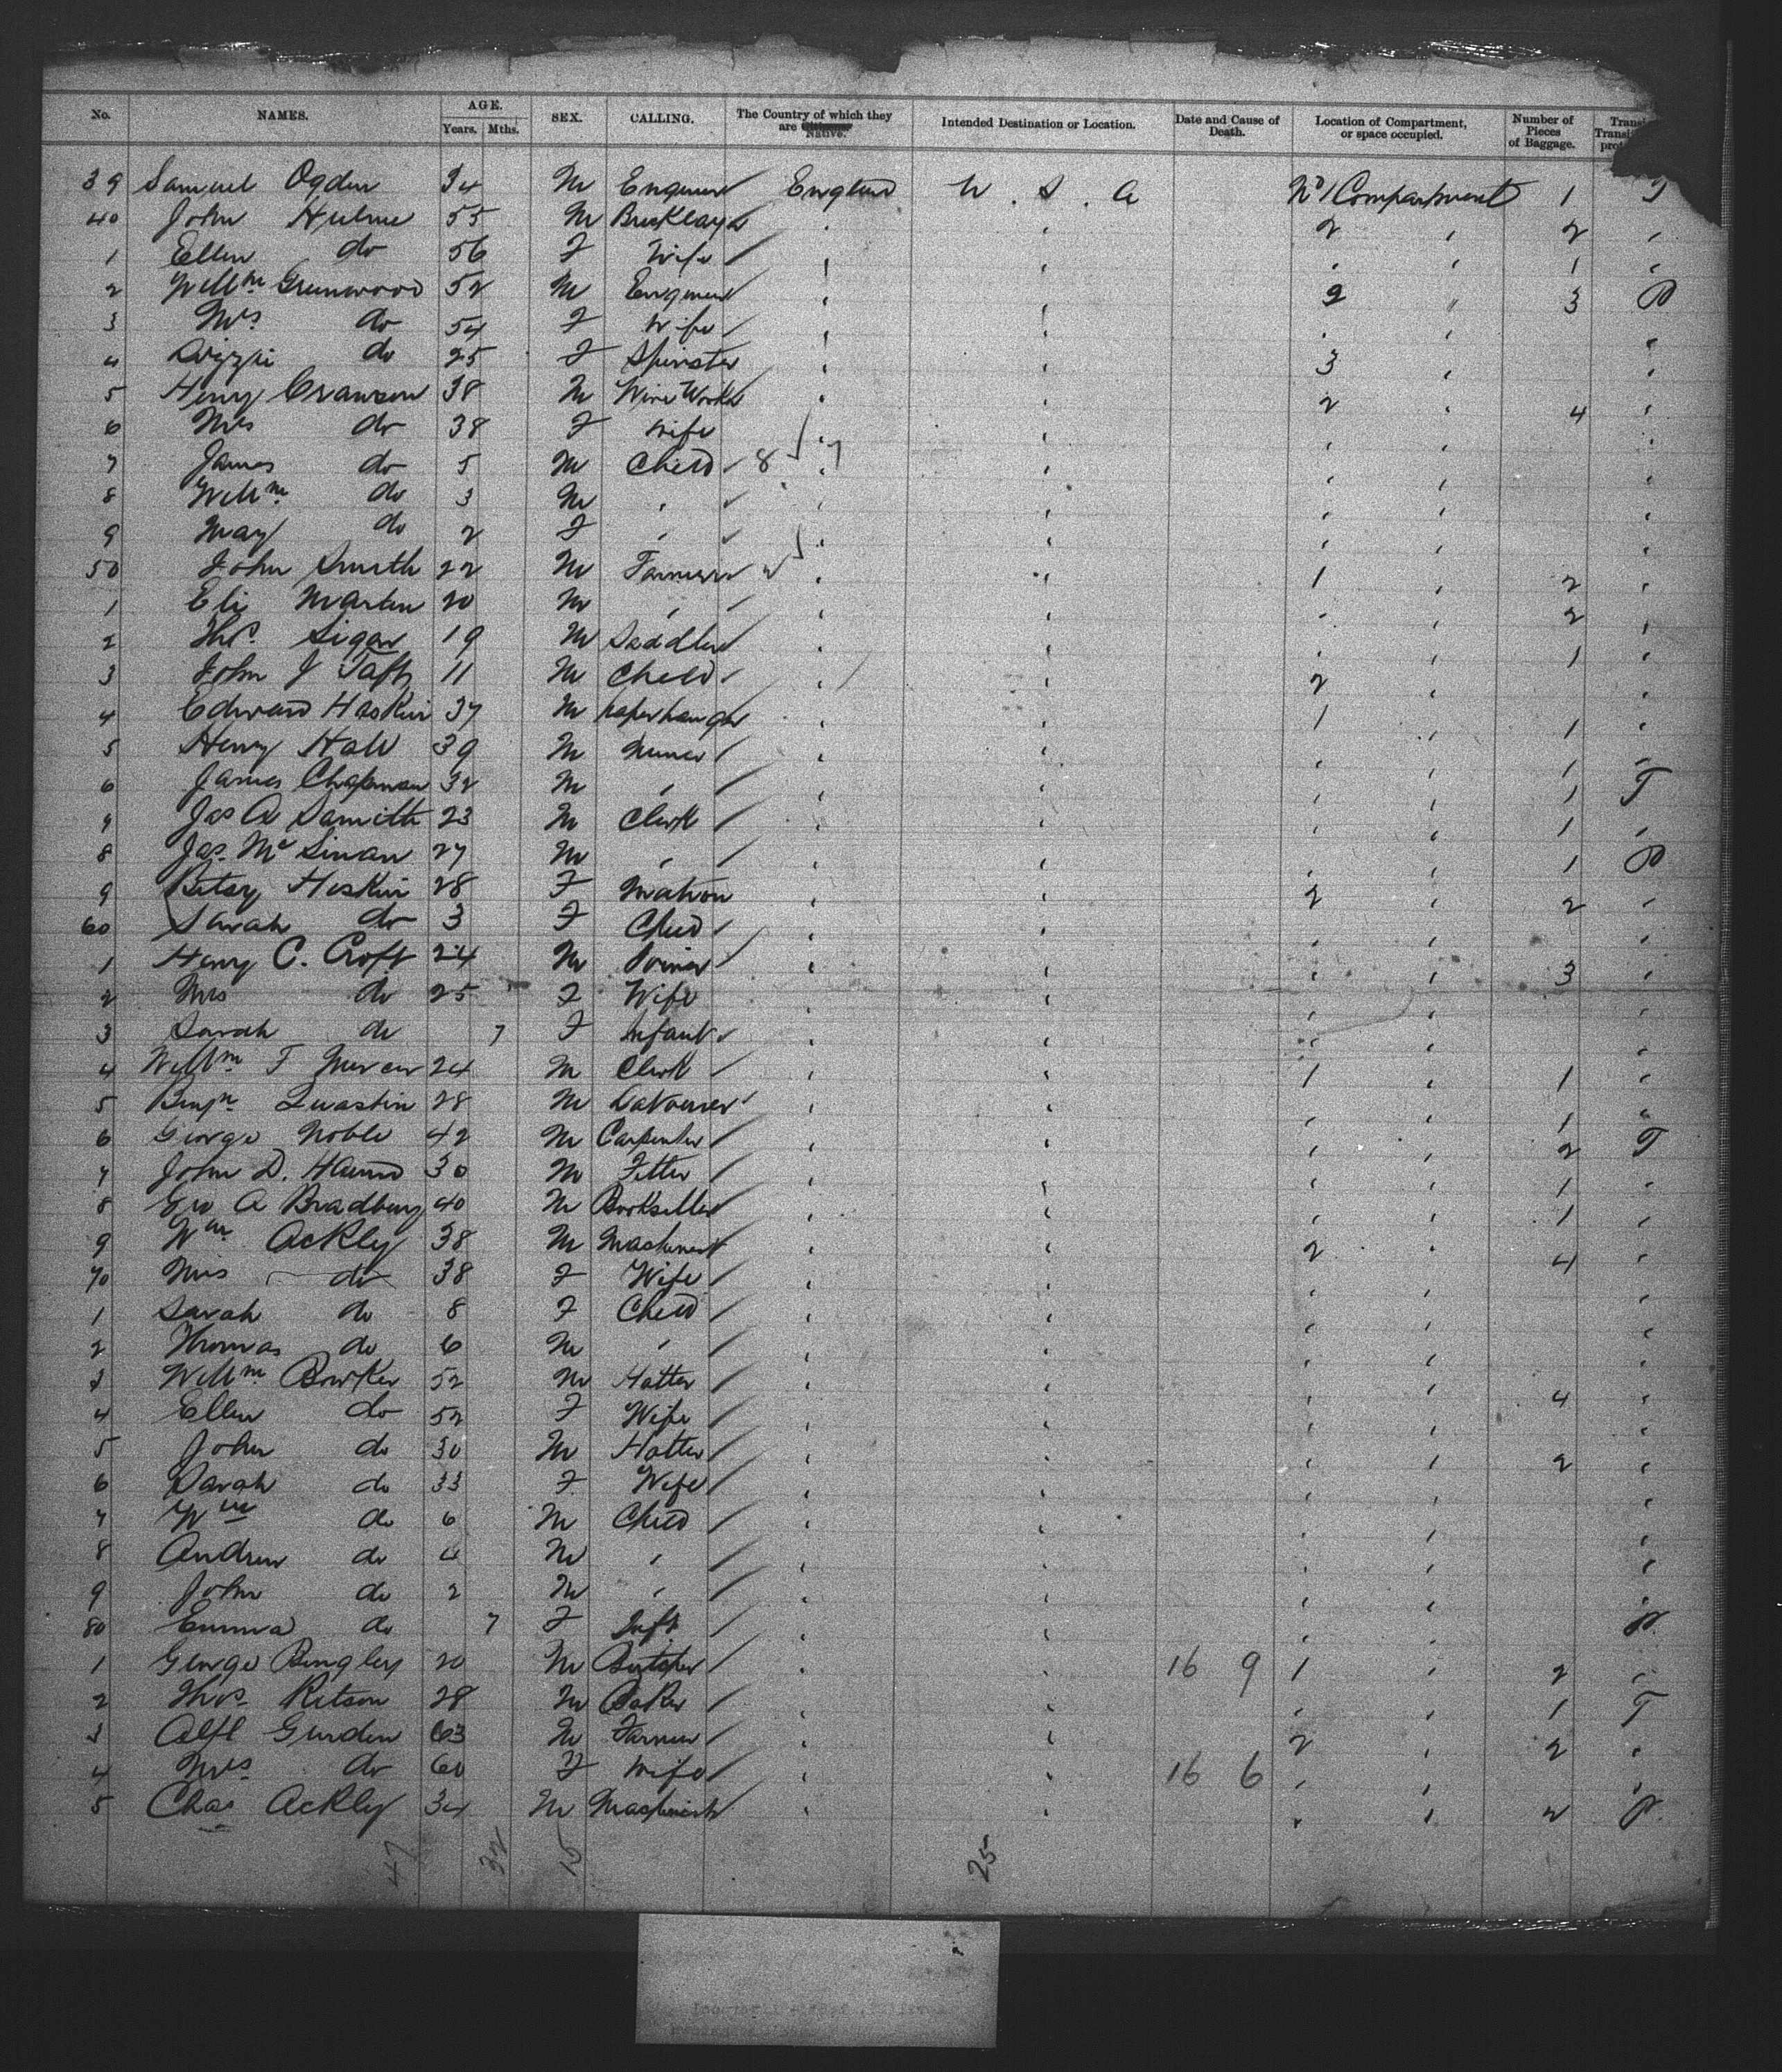 No. NAMES. AGE. Years. Mths. SEX. CALLING. The Country of which they are Native. Intended Destination or Location. Date and Cause of Death. Location of Compartment, or space occupied. Number of Pieces of Baggage.
39 Samuel Ogden 34 M Engineer England U.S.A No 1 Compartment 1 T
40 John Hulme 55 M Bricklayer ' ' 2 ' 2 '
1 Ellen do 56 F Wife ' ' ' ' 1 '
2 Willm Greenwood 52 M Engineer ' ' 2 " 3 P
3 Mrs do 54 F Wife ' ' ' ' '
4 Lizzie do 25 F Spinster ' ' 3 ' '
5 Henry Crawson 38 M Wire Worker ' ' 2 ' 4 '
6 Mrs do 38 F Wife ' ' ' ' '
7 James do 5 M Child 8 7 ' ' ' ' '
8 Willm do 3 M ' ' ' ' ' '
9 May do 2 F ' ' ' ' ' '
50 John Smith 22 M Farmer ' ' 1 ' 2 '
1 Eli Martin 20 M ' ' ' ' ' 2 '
2 Ths. 19 M Saddler ' ' ' ' 1 '
3 John J Taft 11 M Child ' ' 2 ' '
4 Edward Hoskin 37 M paperhanger ' ' 1 ' 1 '
5 Henry Hall 39 M Miner ' ' ' ' 1 '
6 James Chapman 32 M ' ' ' ' ' 1 T
7 Jas A Samith 23 M Clerk ' ' ' ' 1 '
8 Jas. Mc 27 M ' ' ' ' ' 1 P
9 Betsy Hoskin 28 F Matron ' ' 2 ' 2 '
60 Sarah do 3 F Child ' ' ' ' '
1 Henry C. Croft 24 M Joiner ' ' ' ' 3 '
2 Mrs do 25 F Wife ' ' ' ' '
3 Sarah do 7 F Infant ' ' ' ' '
4 Willm T Mercer 24 M Clerk ' ' 1 ' 1 '
5 Benjn. 28 M Labourer ' ' ' ' 1 '
6 George Noble 42 M Carpenter ' ' ' ' 2 T
7 John D. 30 M Fitter ' ' ' ' 1 '
8 Geo A Bradbury 40 M Bookseller ' ' ' ' 1 '
9 Wm Ackley 38 M Machinist ' ' 2 ' 4 '
70 Mrs do 38 F Wife ' ' ' ' '
1 Sarah do 8 F Child ' ' ' ' '
2 Thomas do 6 M ' ' ' ' ' '
3 Willm Bowker 52 M Hatter ' ' ' ' 4 '
4 Ellen do 52 F Wife ' ' ' ' '
5 John do 30 M Hatter ' ' ' ' 2 '
6 Sarah do 33 F Wife ' ' ' ' '
7 Wm do 6 M Child ' ' ' ' '
8 Andrew do 4 M ' ' ' ' ' '
9 John do 2 M ' ' ' ' ' '
80 Emma do 7 F Inft ' ' ' ' P.
1 George Bingley 20 M Butcher ' ' 16 9 1 ' 2 '
2 Thos Ritson 28 M Baker ' ' ' ' 1 T
3 Alfd Gurden 63 M Farmer ' ' 2 ' 2 '
4 Mrs do 60 F Wife ' ' 16 6 ' ' '
5 Chas Ackley 34 M Machinist ' ' ' ' 2 P.
47 32 15 25